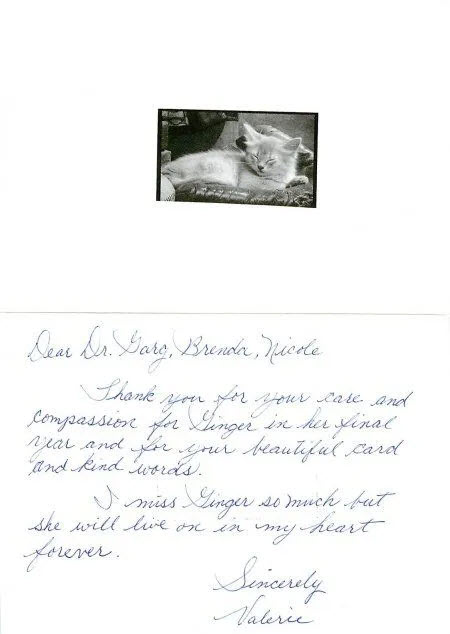 Dear Dr. Garg, Brenda, Nicole
Thank you for your care and
compassion for Ginger in her final
year and for your beautiful card
and kind words.
I miss Ginger so much but
she will live on in my heart
forever.
Sincerely
Valerie